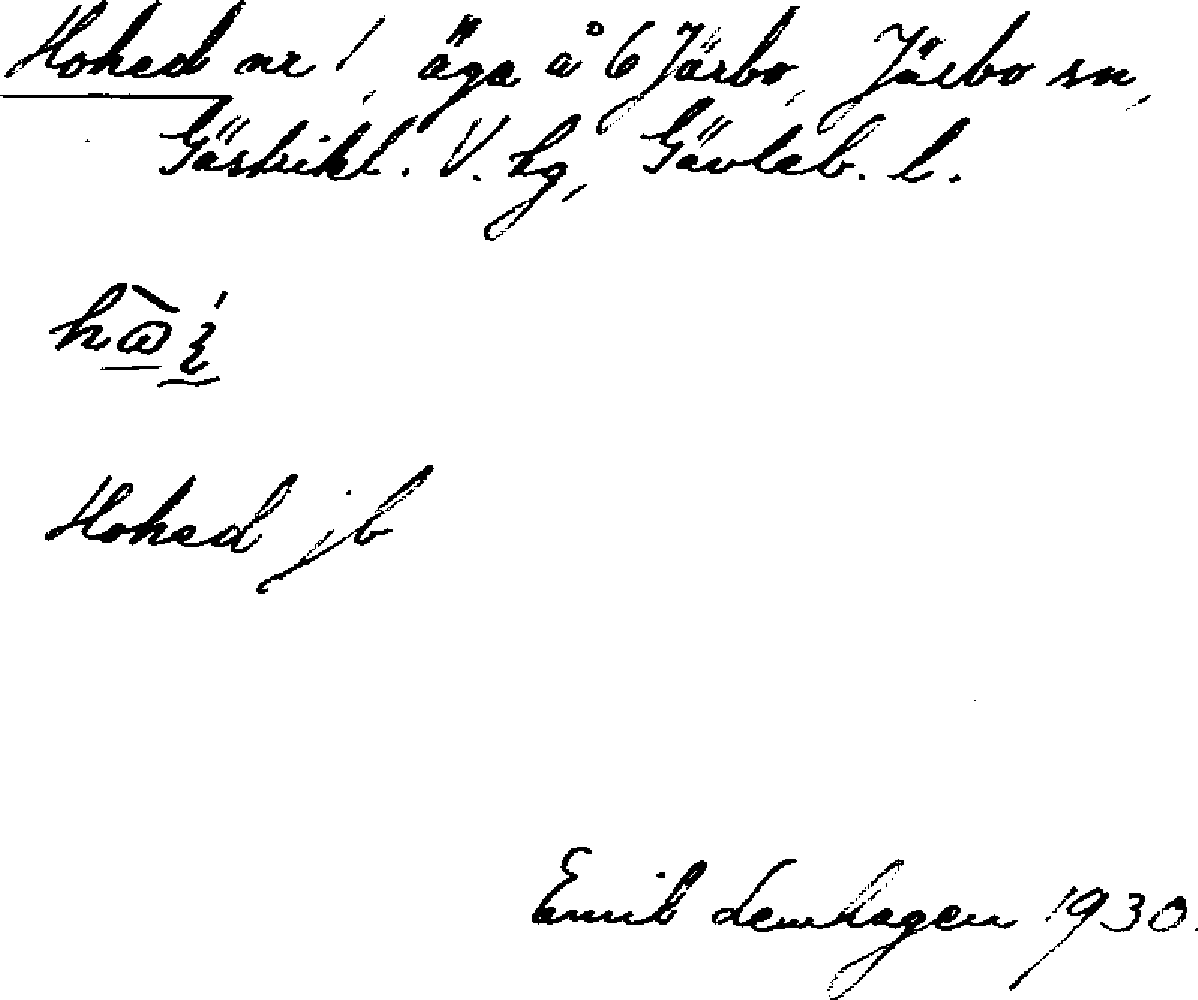 Hohed nr 1, äga å 6 Järbo, Järbo sn,
Gästrikl. V. hg, Gävleb. l.
Hohed jb
Emil Lenhagen 1930.